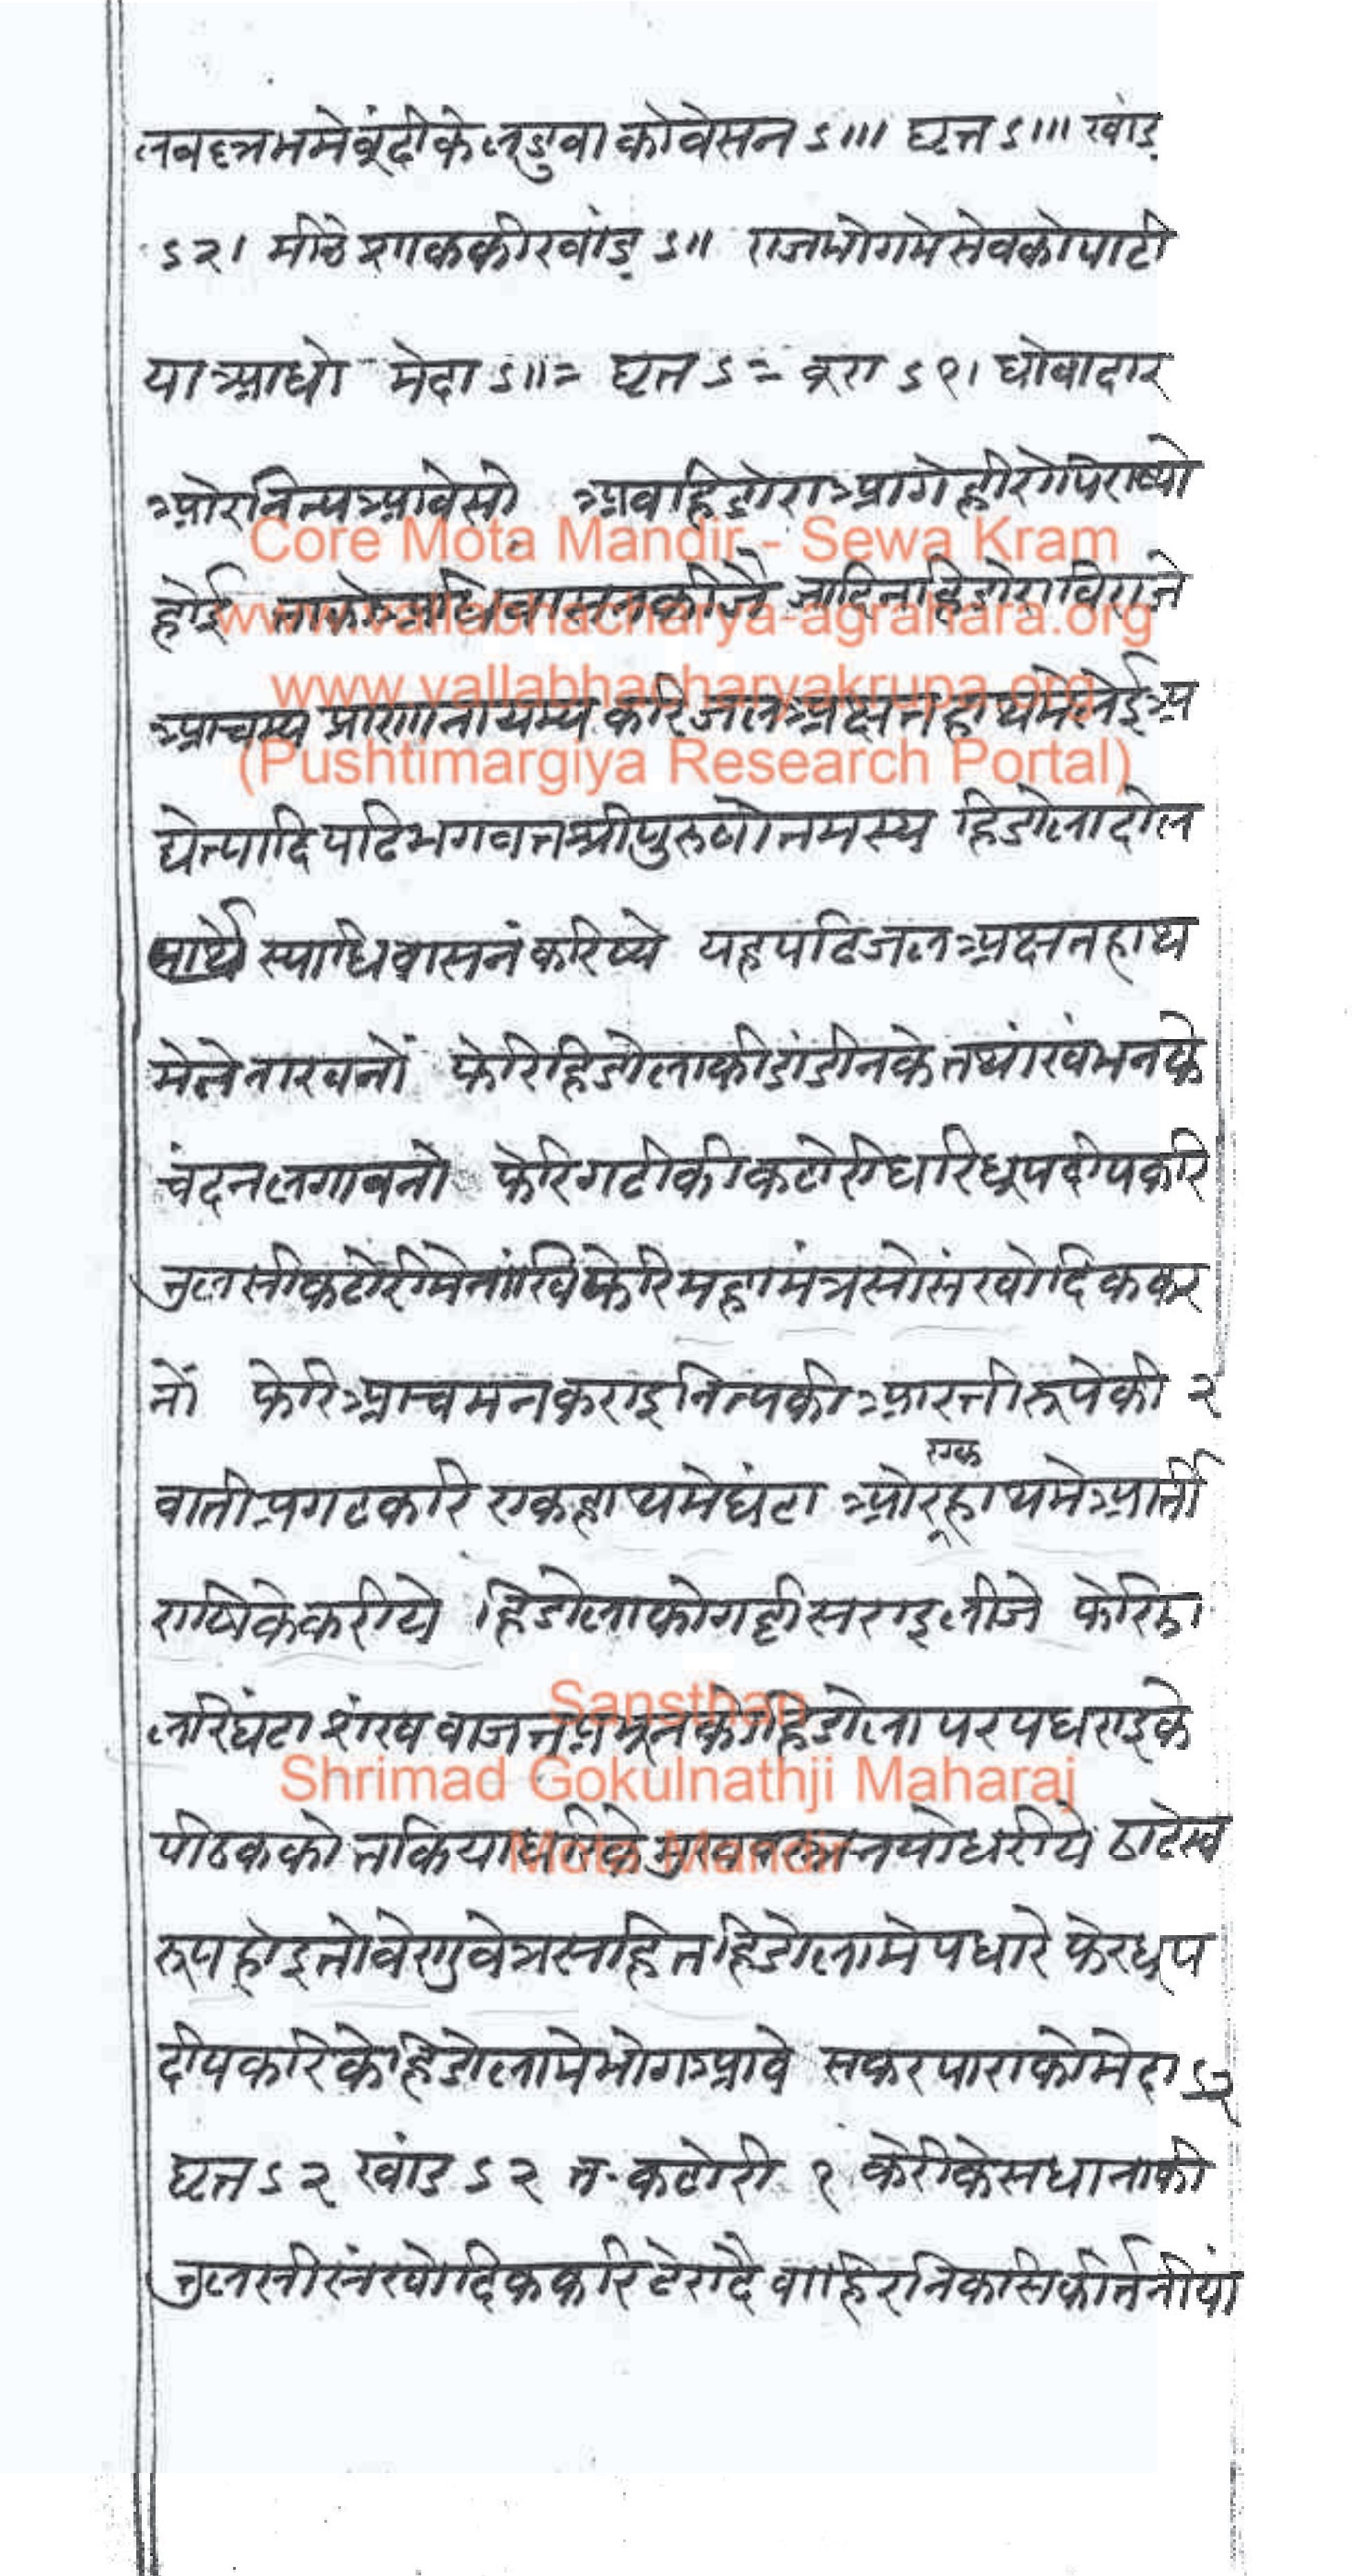 तवछत्रममेबूंदीकेलडुवाकोवेसन ऽ।।। घृत ऽ।।। खांड
ऽ२। मीठे शाककीखांड ऽ।। राजभोगमेसेवकोपाटी
याआधो मेदा ऽ।।= घृत ऽ= बूरा ऽ१। धोवादार
ओरनित्यआवेसो अवहिडोराआगेहीरोपिराष्यो
होई ताकोअधिवासनकीजै जादिनाहिडोराविराजे
आचम्यप्राणानायम्यकरिजलअक्षतहाथमेलेईअ
द्येत्यादिपढिभगवतश्रीपुरुषोत्तमस्य हिडोलादोल
स्याधिवासनंकरिष्ये यहपढिजलअक्षतहाथ
मेलेनाखनों फेरिहिडोलाकीडांडीनकेतथांखंभनके
चंदनलगावनो फेरिगटीकीकटोरीधरिधूपदीपकरि
तुलसीकटोरीमेनांखिफेरिमहामंत्रसोसंखोदिककर
नों फेरिआचमनकराइनित्यकीआरतीरूपेकी २
वातीप्रगटकरि एकहाथमेघंटा ओरएकहाथमेआर्ती
राषिकेकरीये हिडोलाकोगद्दीसराइलीजे फेरिझा
लरिघंटाशंखवाजतप्रभूनकोहिडोलापरपधराइके
पीठकको तकियाधरिके मुखवस्त्रनयोधरीये ठाढेस्व
रूपहोइतोवेणुवेत्रसहितहिडोलामेपधारे फेरधूप
दीपकरिकेहिडोलामेभोगआवे सकरपाराकोमेदा ऽ२
घृत ऽ२ खांड ऽ२ त-कटोरी १ केरीकेसधानाकी
तुलसीसंखोदिककरिटेरादै वाहिरनिकसिकीर्त्तनीयां
Core Mota Mandir - Sewa Kram
www.vallabhacharya-agrahara.org
www.vallabhacharyakrupa.org
(Pushtimargiya Research Portal)
Sansthan
Shrimad Gokulnathji Maharaj
Mota Mandir